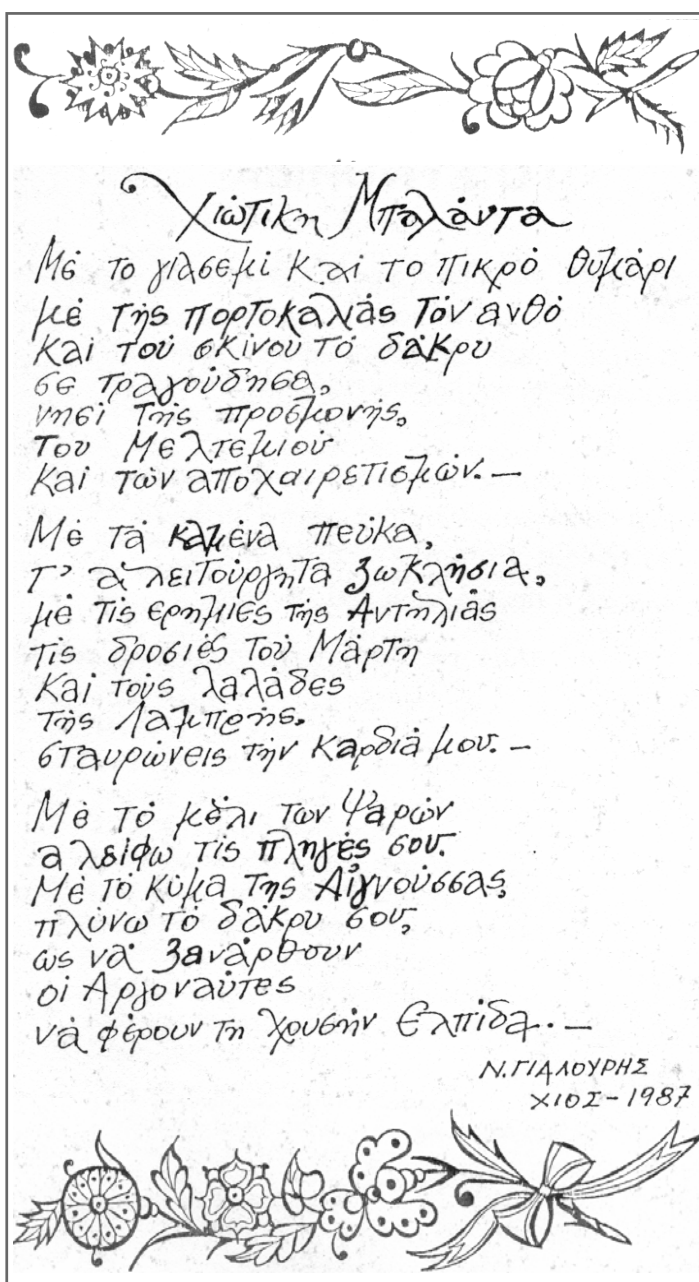 Χιώτικη Μπαλάντα
Μέ το γιασεμί Καί το πικρό θυμάρι
μέ τής πορτοκαλιάς τόν ανθό
Καί τού σκίνου τό δάκρυ
σε τραγούδησα,
νησί τής προσμονής,
του Μελτεμιού
Καί τών αποχαιρετισμών. —
Μέ τά καμένα πεύκα,
τ' αλειτούργητα ξωκλήσια,
μέ τίς ερημιές τής Αντηλιάς
τίς δροσιές τού Μάρτη
Καί τούς λαλάδες
τής Λαμπρής,
σταυρώνεις τήν Καρδιά μου. —
Μέ τό μέλι των Ψαρών
αλείφω τίς πληγές σου.
Μέ τό κύμα της Αίγνούσσας,
πλύνω τό δάκρυ σου,
ως νά ξανάρθουν
οί Αργοναύτες
νά φέρουν τη χρυσήν Ελπίδα. —
Ν. ΓΙΑΛΟΥΡΗΣ
ΧΙΟΣ - 1987